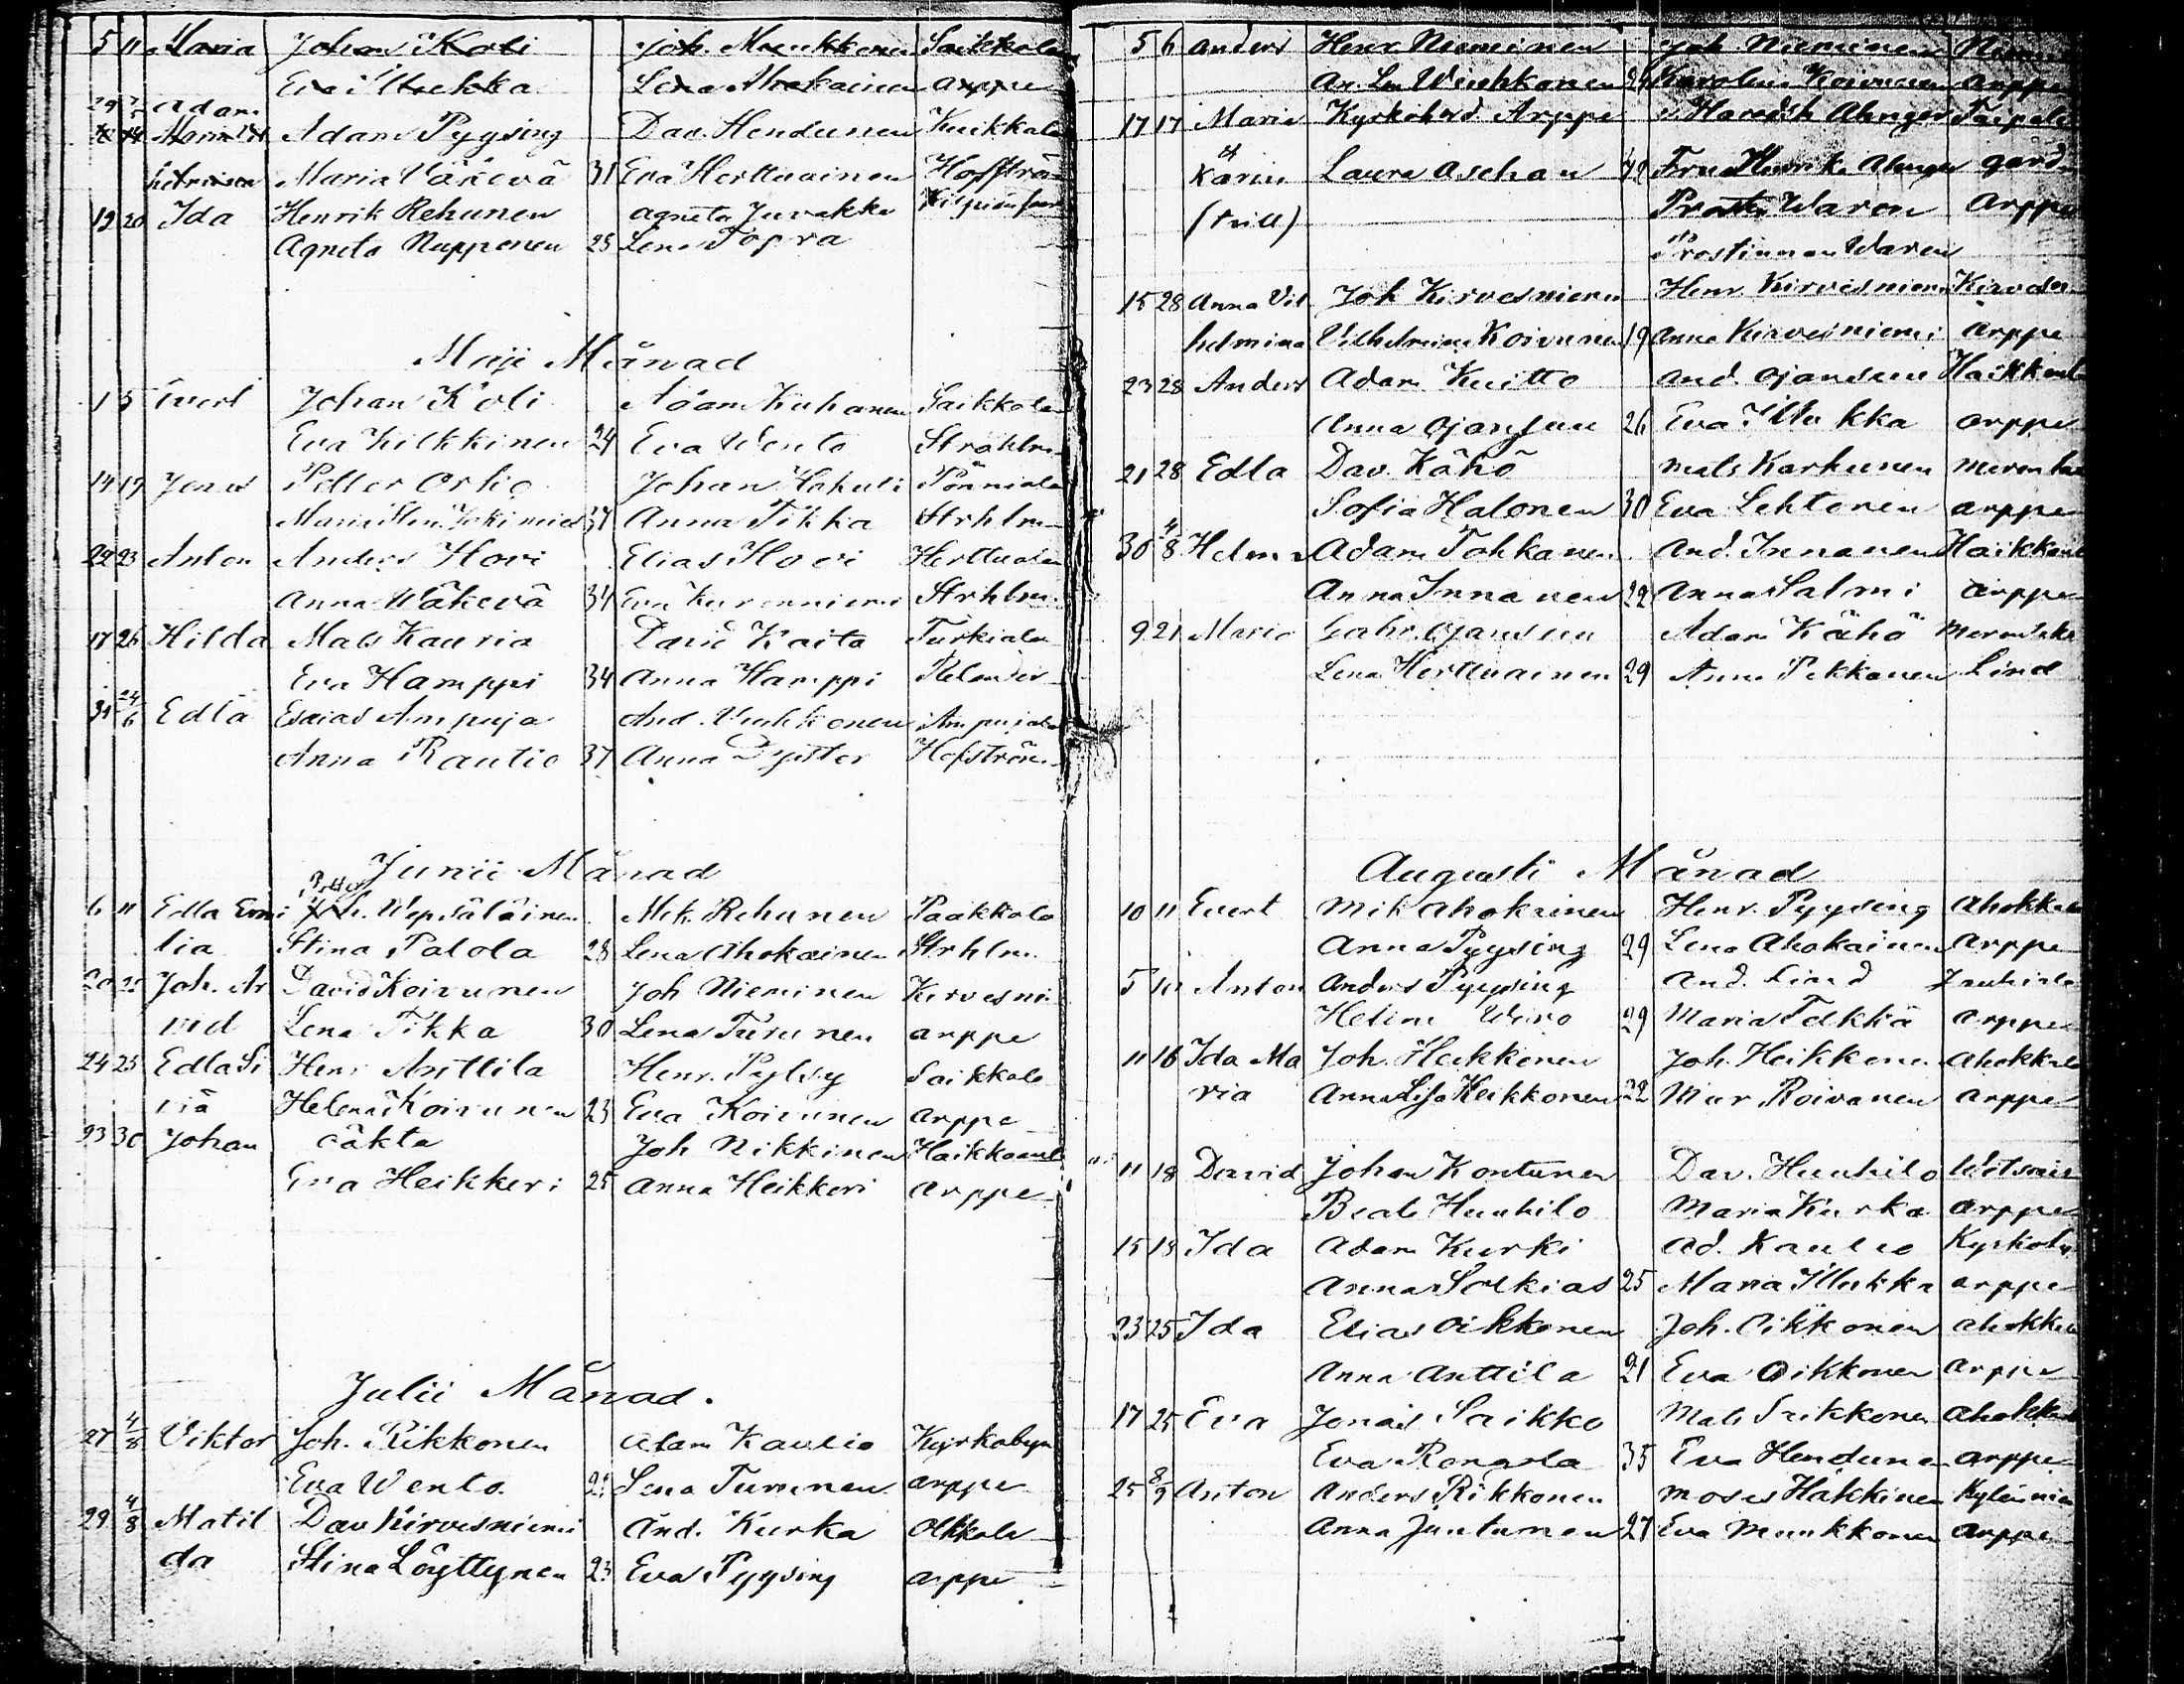 5 11 Maria Johan Koli Joh. Munkkonen Saikkola
Eva Illukka Lena Ahokainen arppe
29 Adam
Adam Pyysing Dav. Hendunen Kuikkala
Maria Väkevä 31 Eva Herttuainen Hoffströ
19 20 Ida Henrik Rehunen Agneta Juvakka
Agneta Nupponen 25 Lena Togra
Maji Månad
1 5 Evert Johan Koli Adam Kuhanen Saikkola
Eva Kilkkinen 24 Eva Wento Strahlm
14 19 Jonas Petter Orko Johan Hakuli Pönniälä
Maria 37 Anna Tikka Strhlm
22 23 Anton Anders Hovi Elias Hovi Herttuala
Anna Wäkevä 34 Eva Kurenniemi Strhlm.
17 26 Hilda Mats Kauria David Kaita Turkiala
Eva Hamppi 34 Anna Hamppi Relander
31 24/6 Edla Esaias Ampuja And. Vuokkonen Ampujala
Anna Rautio 37 Anna Pyster Hofström
Junii Månad
6 11 Edla Emi Petter Wepsäläinen Mik. Rehunen Paakkola
lia Stina Palola 28 Lena Ahokainen Strhlm.
20 25 Joh. Ar David Koivunen Joh Nieminen Kirvesni
vid Lena Tikka 30 Lena Turunen arppe
24 25 Edla Si Henr Anttila Henr. Pylsy Saikkola
viä Helena Koivunen 23 Eva Koivunen arppe
23 30 Johan oäkta Joh Nikkinen Haikkoanl
Eva Heikkeri 25 Anna Heikkeri arppe
Julii Månad.
27 4/8 Viktor Joh. Rikkonen Adam Kaulio Kyrkobyn
Eva Wento Lena Turunen arppe
29 4/8 Matil Dav Kirvesniemi And. Kurka Olkkola
da Stina Löyttynen 23 Eva Pyysing arppe
5 6 Anders Henr Nieminen Joh Nieminen
Ar. Len Wuokkonen 24 Karolina Koivunen arppe
17 17 Maria Kyrkoherd Arppe Taipale
Karin Laura Aschan 42 Fru Henrik Ahnger gård
(trill) Prosten Waren Arppe
Prostinnan Waren
15 28 Anna Vil Joh Kirvesniemi Henr. Kirvesniemi Kirvesn
helmina Vilhelmina Koivunen 19 Anna Kirvesniemi arppe
23 28 Anders Adam Kuitto And. Ojansuu Haikkanl
Anna Ojansuu 26 Eva Illukka arppe
21 28 Edla Dav. Kähö Mats Karhunen
Sofia Halonen 30 Eva Lehtonen arppe
30 4/8 Helena Adam Tohkanen And. Innanen Haikkanl
Anna Innanen 22 Anna Salmi arppe
9 21 Maria Gabr. Ojansuu Adam Kähö
Lena Herttuainen 29 Anna Pekkanen Lind
Augusti Månad
10 11 Evert Mik Ahokainen Henr. Pyysing Ahokkala
Anna Pyysing 29 Lena Ahokainen arppe
5 Anton Anders Pyysing And. Lind
Helena Wiro 29 Maria Telkkä arppe
11 16 Ida Ma Joh. Heikkonen Joh. Heikkonen Ahokkala
ria Anna Lisa Keikkonen 22 Mar. Roivanen arppe
11 18 David Johan Kontunen Dav. Huuhilo
Beata Huuhilo Maria Kurka arppe
15 18 Ida Adam Kurki Ad. Kaulio Kyrkoby
Anna Solkias 25 Maria Illukka arppe
23 25 Ida Elias Oikkonen Joh. Oikkonen Ahokkala
Anna Anttila 21 Eva Oikkonen arppe
17 25 Eva Jonas Saikko Mats Saikkonen Ahokkala
Eva Rongola 35 Eva Hendunen arppe
25 8/9 Anton Anders Rikkonen Moses Häkkinen
Anna Juutunen 27 Eva Munkkonen arppe